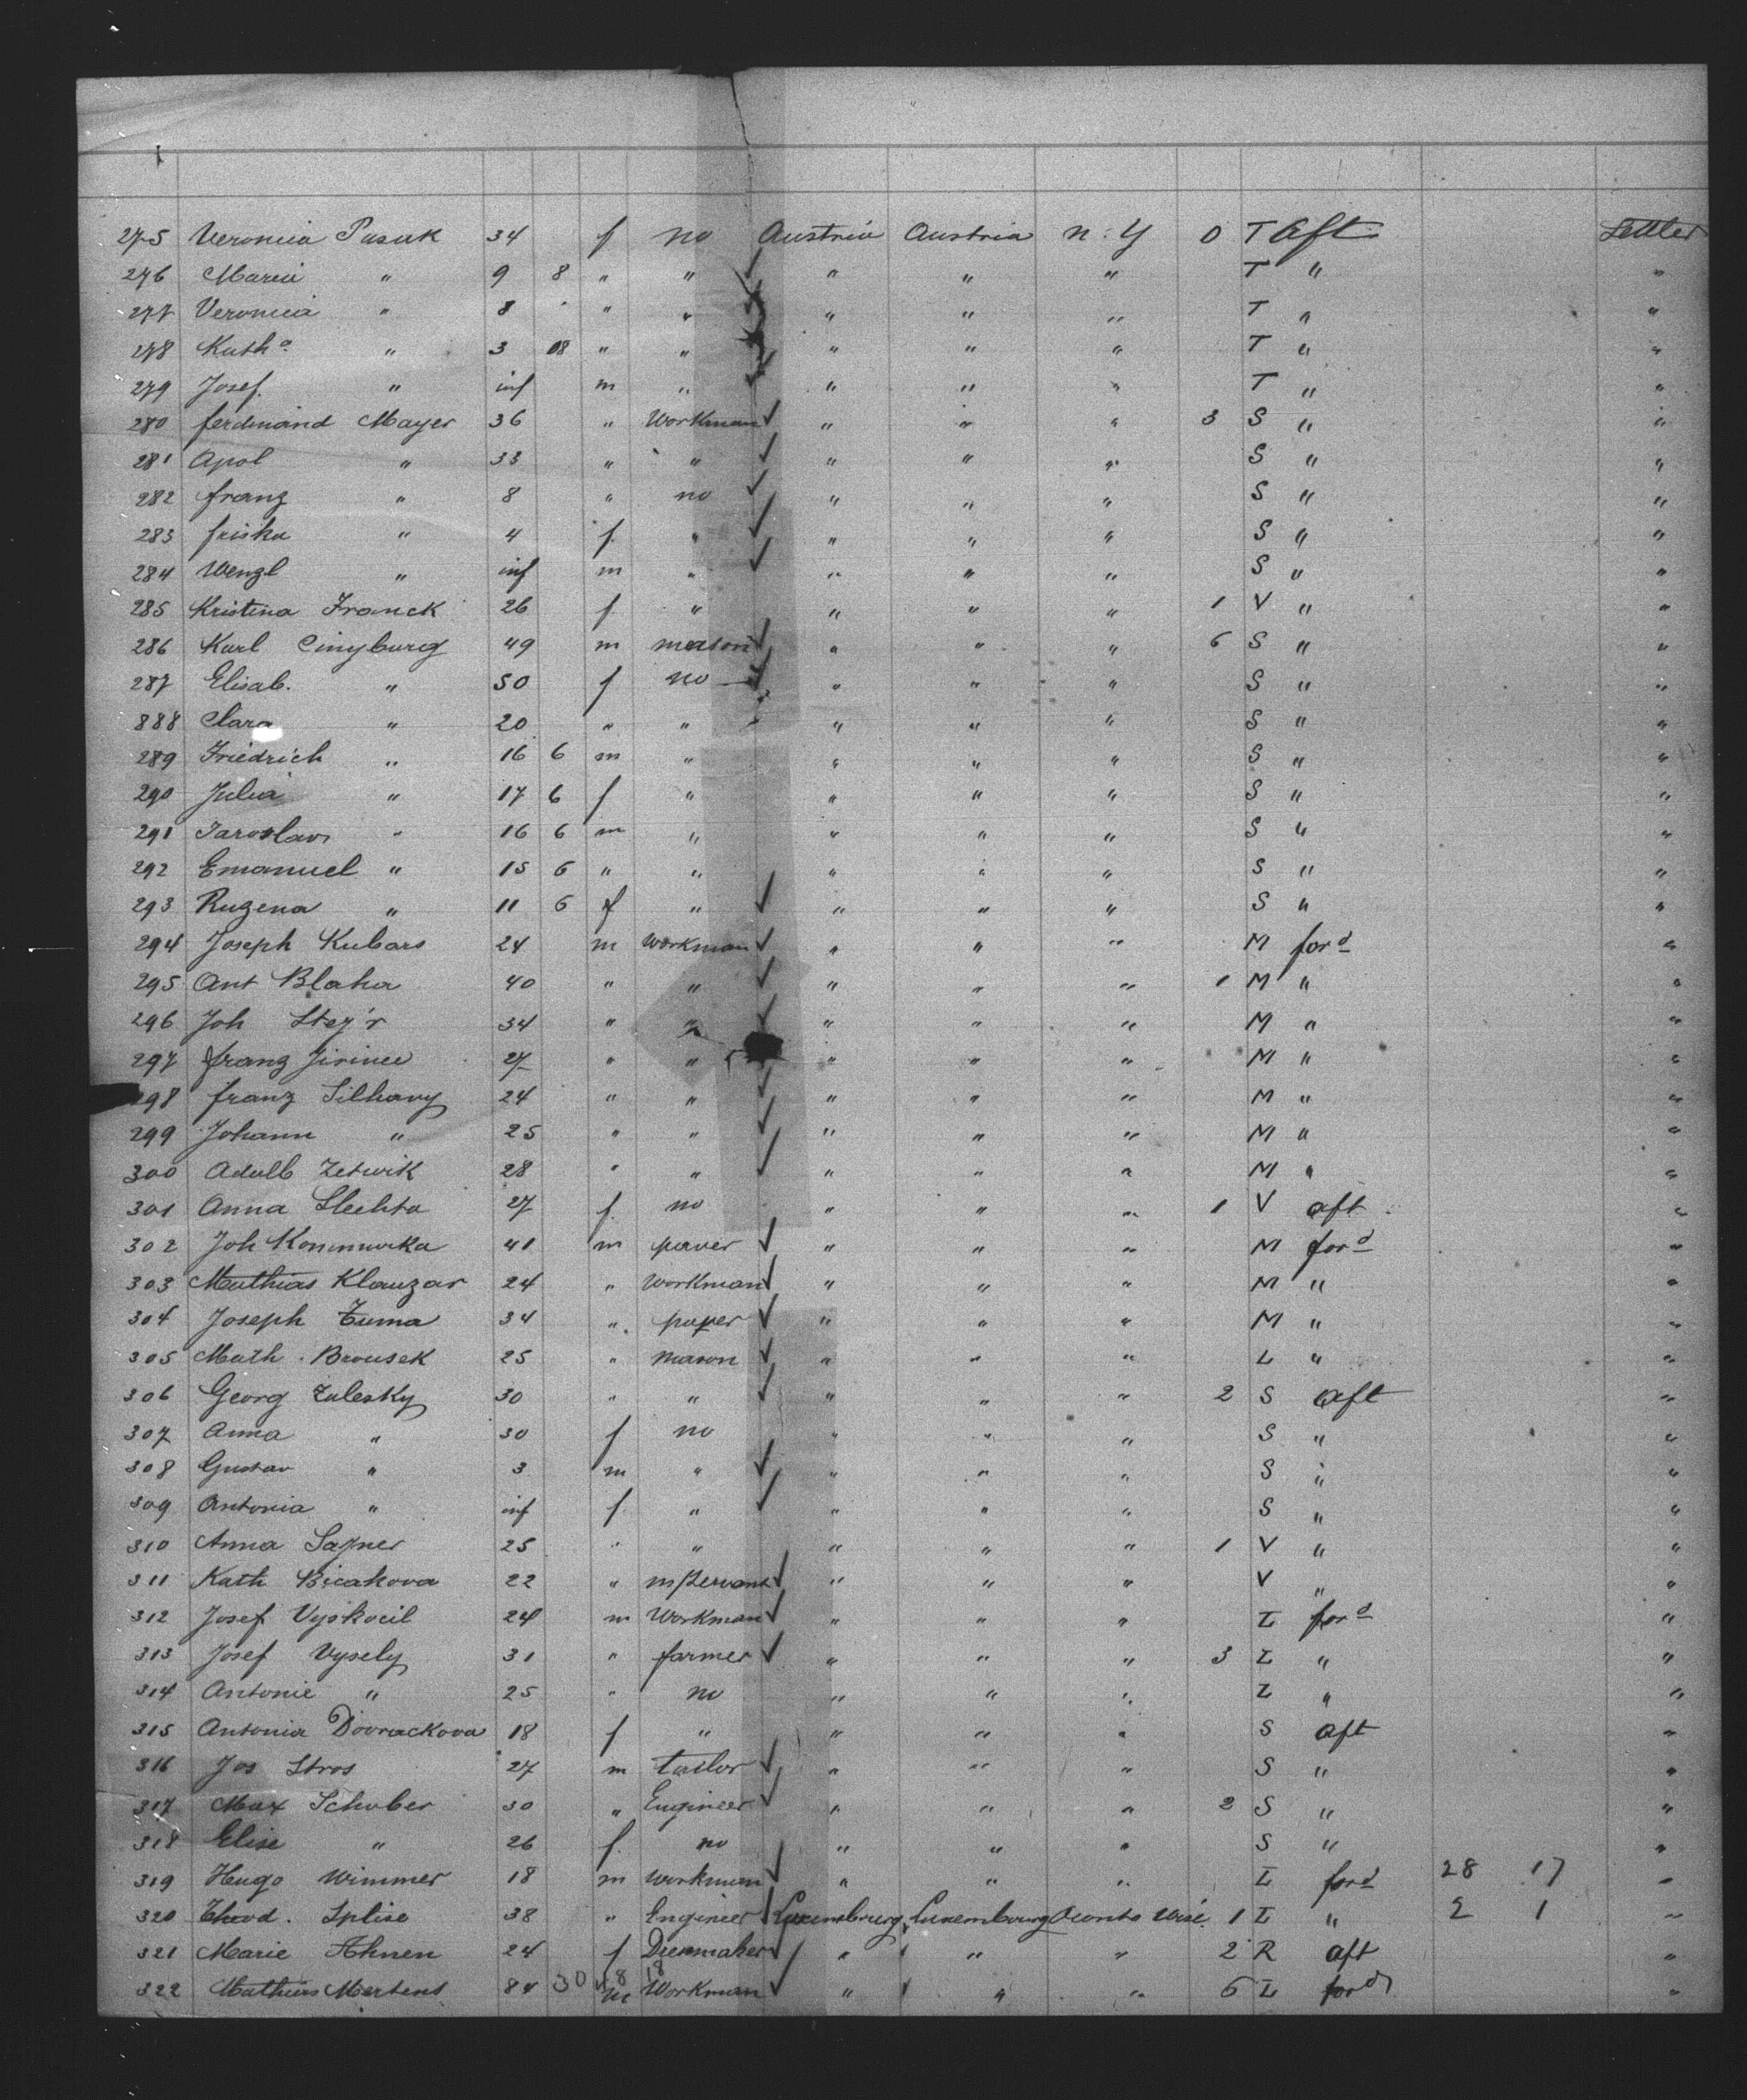 275 Veronica Pasak 34 f no Austria Austria N.Y 0 T Aft Settler
276 Maria " 9 8 " " " " " T " "
277 Veronica " 8 " " " " " T " "
278 Kath a " 3 08 " " " " " T " "
279 Josef. " inf m " " " " T " "
280 ferdinand Mayer 36 " Workman " " " 3 S " "
281 Apol " 33 " " " " " S " "
282 franz " 8 " no " " " S " "
283 friska " 4 f. " " " " S " "
284 Wenzl " inf m " " " " S " "
285 Kristina Franck 26 f. " " " " 1 V " "
286 Karl Cinyburg 49 m mason " " " 6 S " "
287 Elisab. " 50 f no " " " S " "
888 Clara " 20 " " " " " S " "
289 Friedrich " 16 6 m " " " " S " "
290 Julia " 17 6 f " " " " S " "
291 Jaroslav " 16 6 m " " " " S " "
292 Emanuel " 15 6 " " " " " S " "
293 Ruzena " 11 6 f " " " " S " "
294 Joseph Kubars 24 m Workman " " " M ford "
295 Ant Blaha 40 " " " " " 1 M " "
296 Joh 34 " " " " " M " "
297 franz Jirinec 27 " " " " " M " "
298 franz Silhavy 24 " " " " " M " "
299 Johann " 25 " " " " " M " "
300 Adalb Zetwik 28 " " " " " M " "
301 Anna Slechta 27 f. no " " " 1 V aft "
302 Joh 41 m paver " " " M ford "
303 Mathias Klauzar 24 " Workman " " " M " "
304 Joseph Tuma 34 " paper " " " M " "
305 Math. Brousek 25 " mason " " " L " "
306 Georg Zulesky 30 " " " " " 2 S aft "
307 Anna " 30 f no " " " S " "
308 Gustav " 3 m " " " " S " "
309 Antonia " inf f. " " " " S " "
310 Anna 25 " " " " " 1 V " "
311 Kath Bicakova 22 " m/servant " " " V " "
312 Josef Vyskocil 24 m Workman " " " L ford "
313 Josef Vysely 31 " farmer " " " 3 L " "
314 Antonie " 25 " no " " " L " "
315 Antonia Dvorackova 18 f " " " " S aft "
316 Jos Stros 27 m tailor " " " S " "
317 Max Schober 30 " Engineer " " " 2 S " "
318 Elise " 26 f. no " " " S " "
319 Hugo Wimmer 18 m workman " " " L ford 28 17 "
320 Theod. Splise 38 " Engineer Luxemburg Luxembourg Oconto Wisc. 1 L " 2 1 "
321 Marie Ahnen 24 f Dressmaker " " " 2 R aft "
322 Mathias Mertens 84 30 48 18 m Workman " " " 6 L ford "